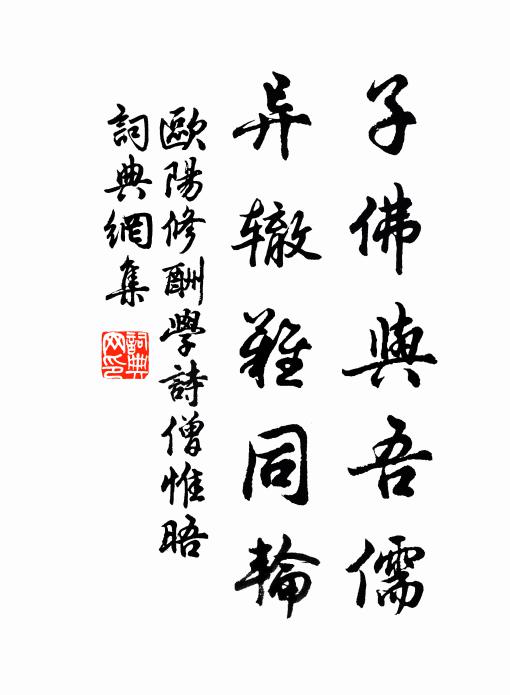 子佛與吾儒
异辙難同輪
歐陽修酬學詩僧惟晤
詞典網集
詞典
网印